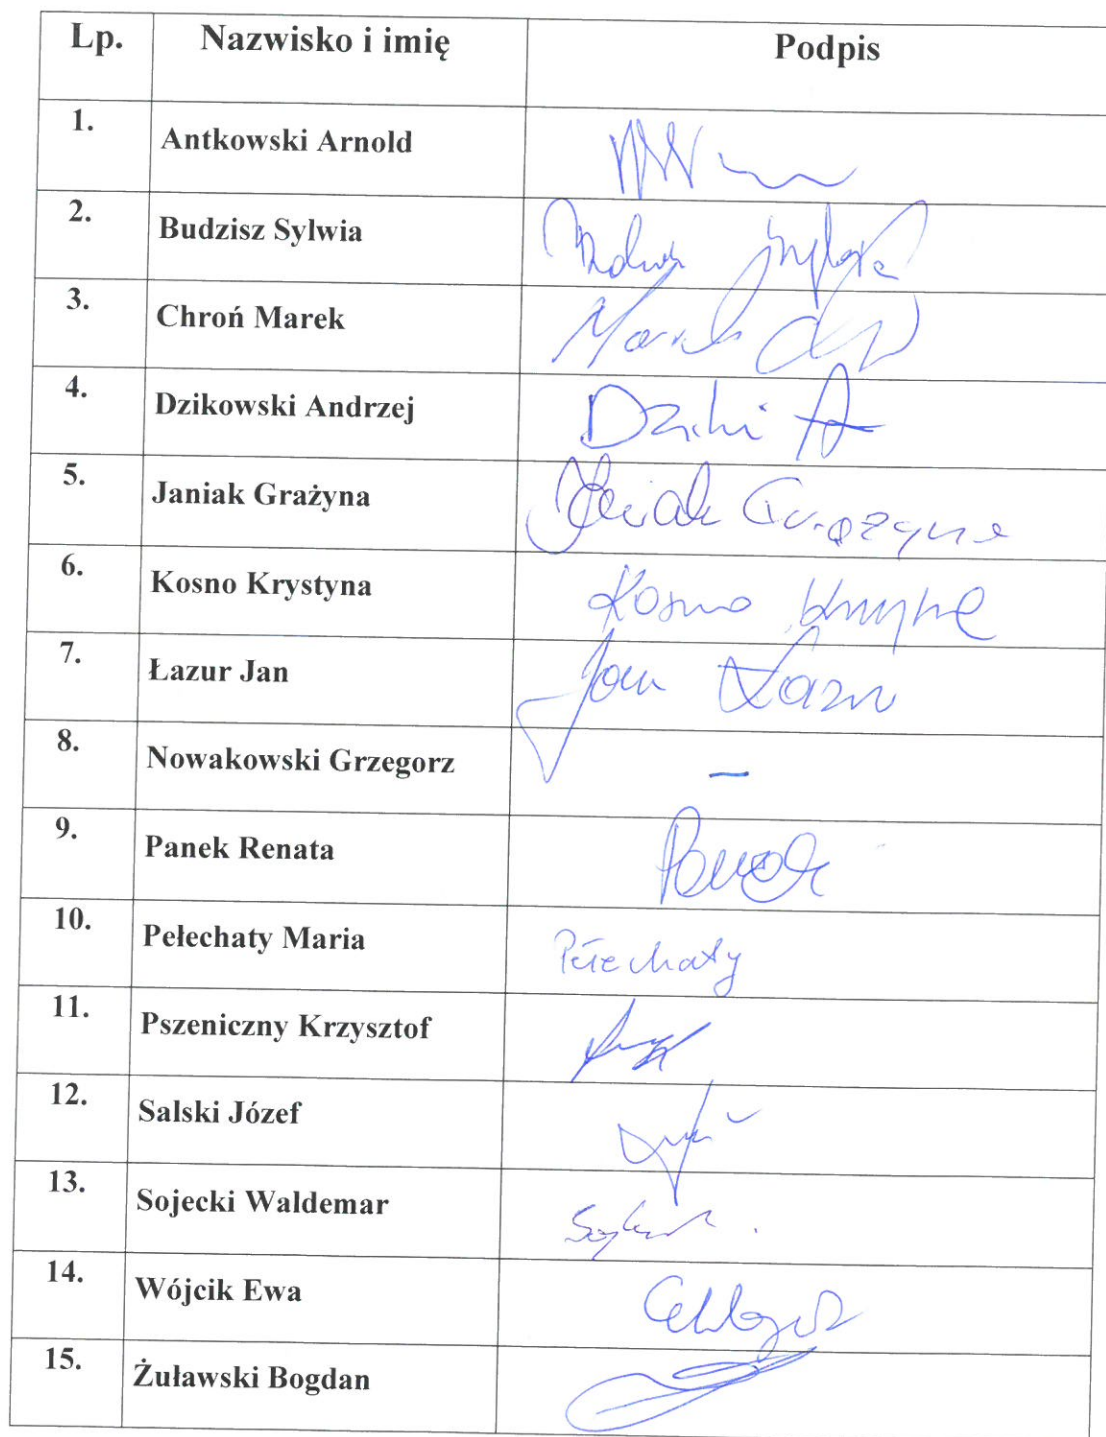 Lp. Nazwisko i imię Podpis
1. Antkowski Arnold
2. Budzisz Sylwia
3. Chroń Marek Marek
4. Dzikowski Andrzej Dziki A
5. Janiak Grażyna Janiak Grażyna
6. Kosno Krystyna Kosno Krystyna
7. Łazur Jan Jan Łazur
8. Nowakowski Grzegorz –
9. Panek Renata Panek
10. Pełechaty Maria Pełechaty
11. Pszeniczny Krzysztof
12. Salski Józef
13. Sojecki Waldemar
14. Wójcik Ewa
15. Żuławski Bogdan